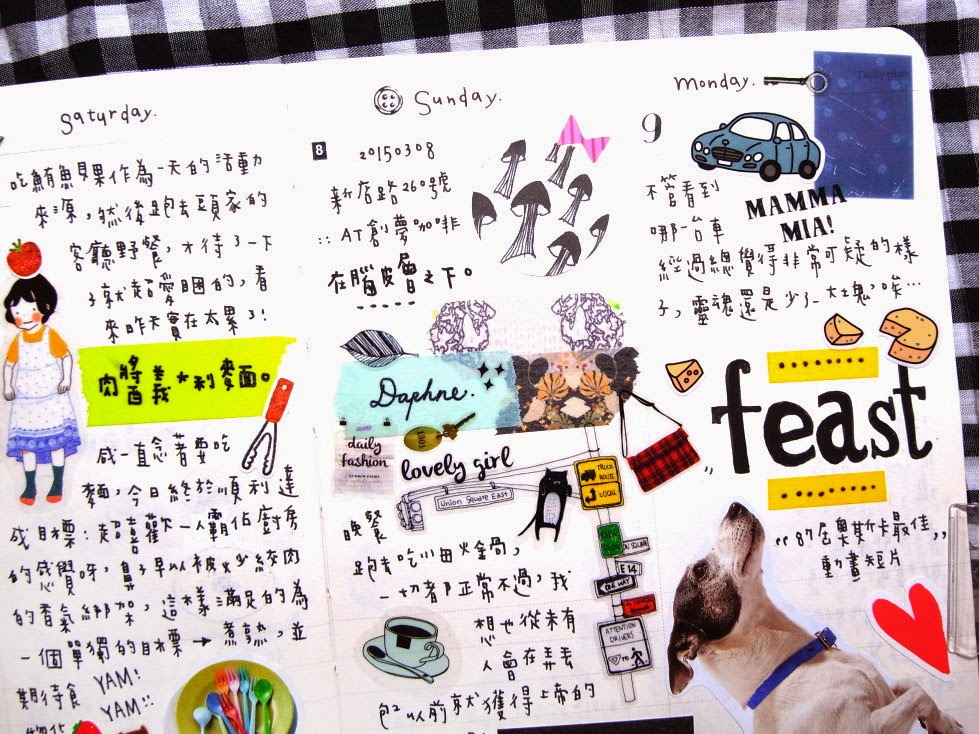 Saturday.
吃鮪魚貝果作為一天的活動
來源，然後跑去頭家的
客廳野餐，才待了一下
子就超愛睏的，看
來昨天實在太累了!
肉醬義大利麵。
一直念著要吃
麵，今日終於順利達
成目標：超喜歡一人霸佔廚房
的感覺呀，鼻子早以被炒絞肉
的香氣綁架，這樣滿足的為
一個單獨的目標→煮熟，並
期待食
YAM!
YAM!!
Sunday.
8
20150308
新店路260號
:: AT創夢咖啡
在腦皮層之下。
Daphne.
1801
daily
fashion
lovely girl
Union Square East
TRUCK
ROUTE
LOCAL
ON SQUARE
E 14
ONE WAY
ATTENTION
DRIVERS
TO
晚餐
跑去吃小田火鍋，
一切都正常不過，我
想也從未有
人會在弄丟
包包以前就獲得上帝的
monday.
Daily plan
9
不管看到
哪一台車
MAMMA
MIA!
經過總覺得非常可疑的樣
子，靈魂還是少了一大塊，唉…
"feast
"87屆奧斯卡最佳"
動畫短片